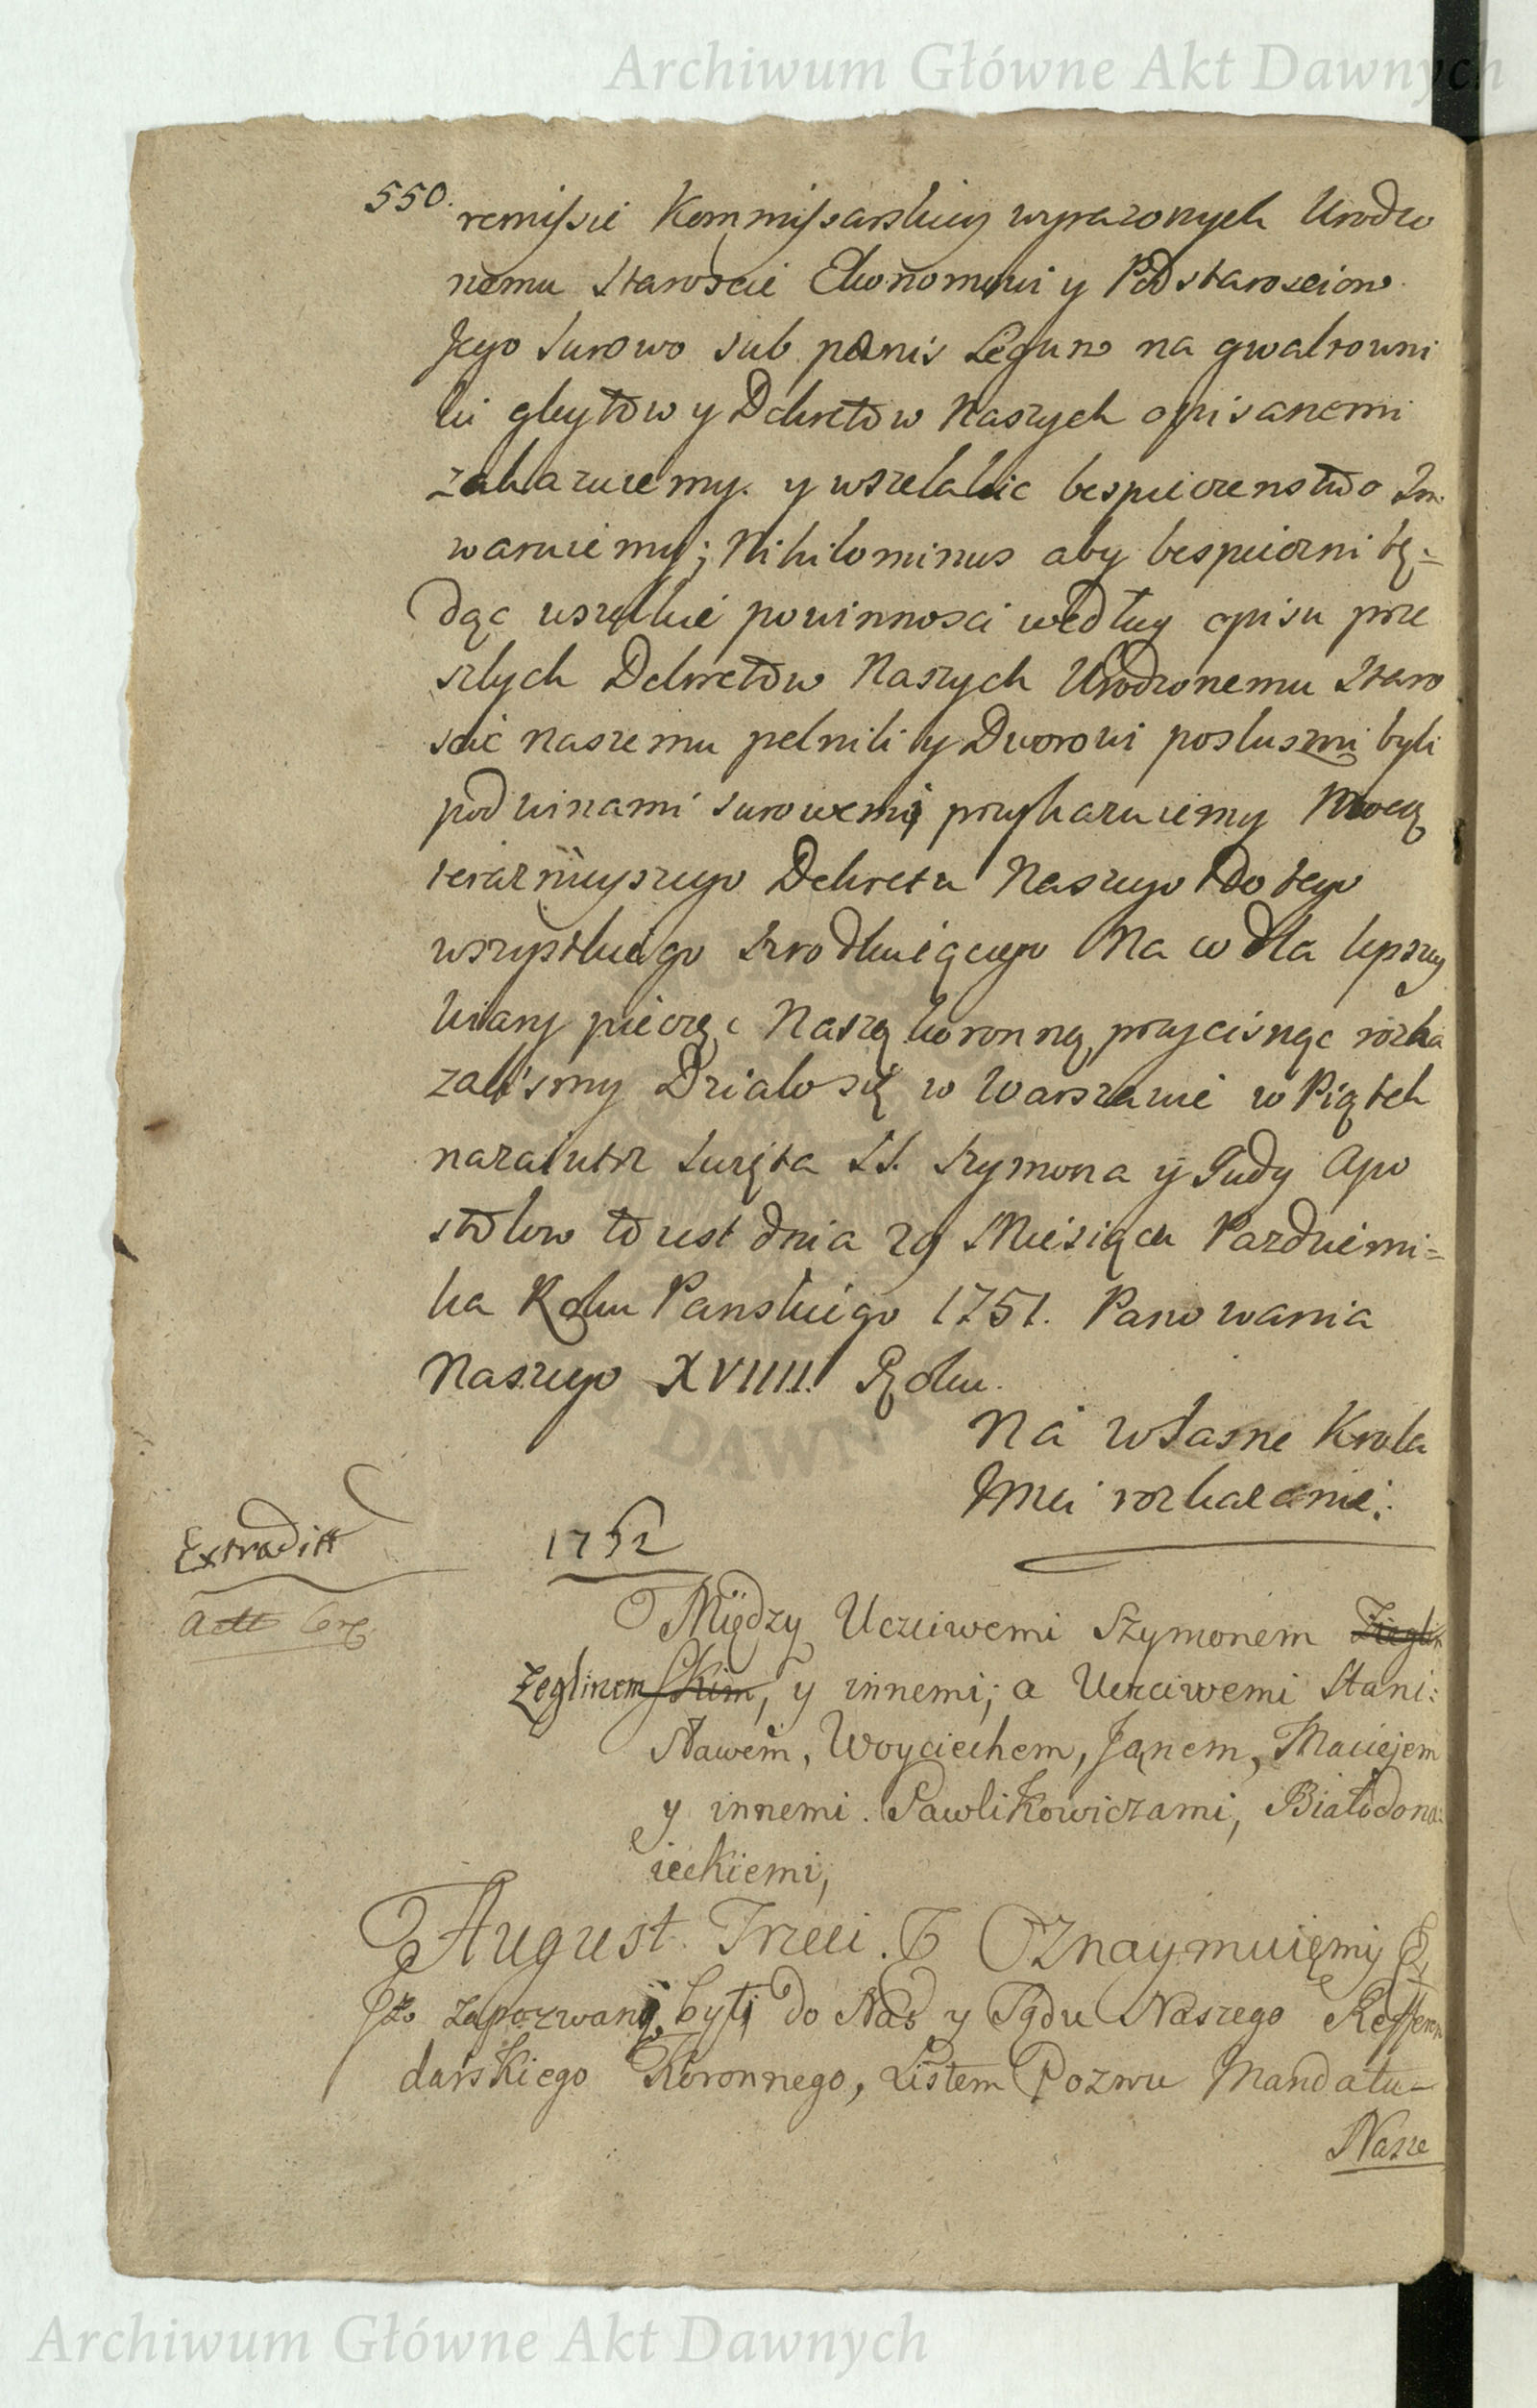 Archiwum Główne Akt Dawnych
550.
remissie Kommissarskiey wyrazonych Urodzo
nemu Staroscie Ekonomowi y Podstarosciow
Jego surowo sub pænis Legum na gwaltowni
ki gleytow y Dekretow Naszych opisanemi
zakazuiemy. y wszelakie bespieczenstwo Im
waruiemy; Nihilominus aby bespieczni bę=
dąc wszelkie powinnosci według opisu prze
szlych Dekretow Naszych Urodzonemu Staro
scie naszemu pelnili y Dworowi posluszni byli
pod winami surowemi przykazuiemy Mocą
teraznieyszego Dekretu Naszego Do tego
wszystkiego srodkuiącego Na co dla lepszey
wiary pieczęc Naszą koronną przycisnąc rozka
zalismy Dzialo się w Warszawie w Piątek
nazaiutrz Swięta SS. Szymona y Judy Apo
stołow to iest dnia 29 Miesiąca Pazdzierni=
ka Roku Panskiego 1751. Panowania
Naszego XVIIII. Roku.
Na własne Krola
Jmci rozkazanie.
Extraditt
1752
Między Uczciwemi Szymonem Zieglin
Zeglinem skim, y innemi; a Uczciwemi Stani:
sławem, Woyciechem, Janem, Maciejem
y innemi. Pawlikowiczami, Białodona:
ieckiemi,
August Trzeci. Oznaymuiemy
Jż zapozwani byli do Nas y Sądu Naszego Refferen
darskiego Koronnego, Listem Pozwu Mandatu
Nasze
ARCHIWUM GŁÓWNE AKT DAWNYCH
Archiwum Główne Akt Dawnych